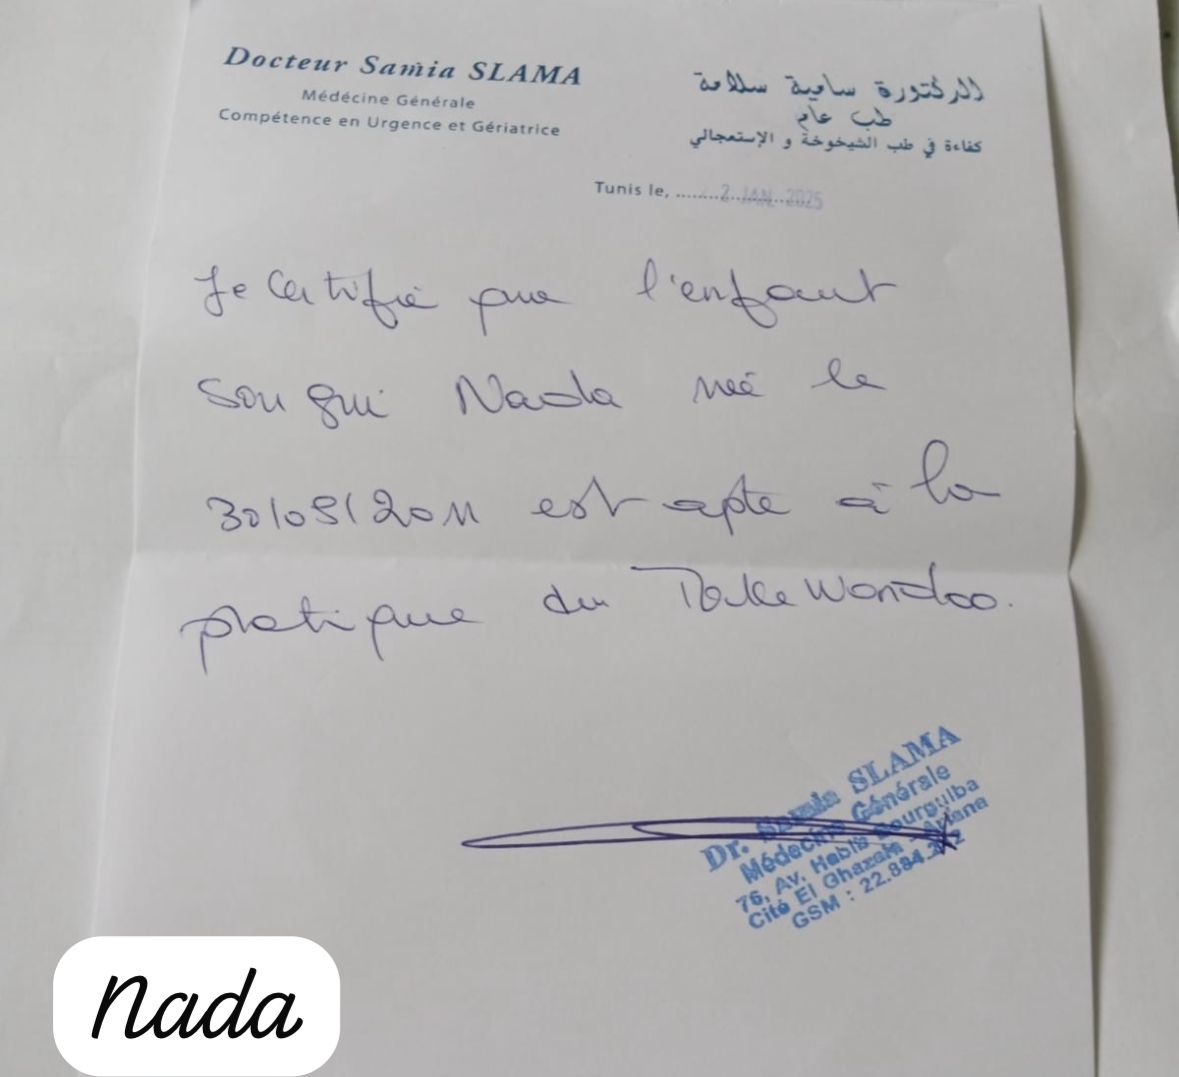 Docteur Samia SLAMA
Médécine Générale
Compétence en Urgence et Gériatrice
الدكتورة سامية سلامة
طب عام
كفاءة في طب الشيخوخة و الإستعجالي
Tunis le, ........2 JAN 2025
Je certifie que l'enfant
Songui Nada née le
30/05/2011 est apte à la
pratique du Taekewondoo.
Dr. Samia SLAMA
Médecine Générale
76, Av. Habib Bourguiba
Cité El Ghazala - Ariana
GSM : 22.884.
Nada